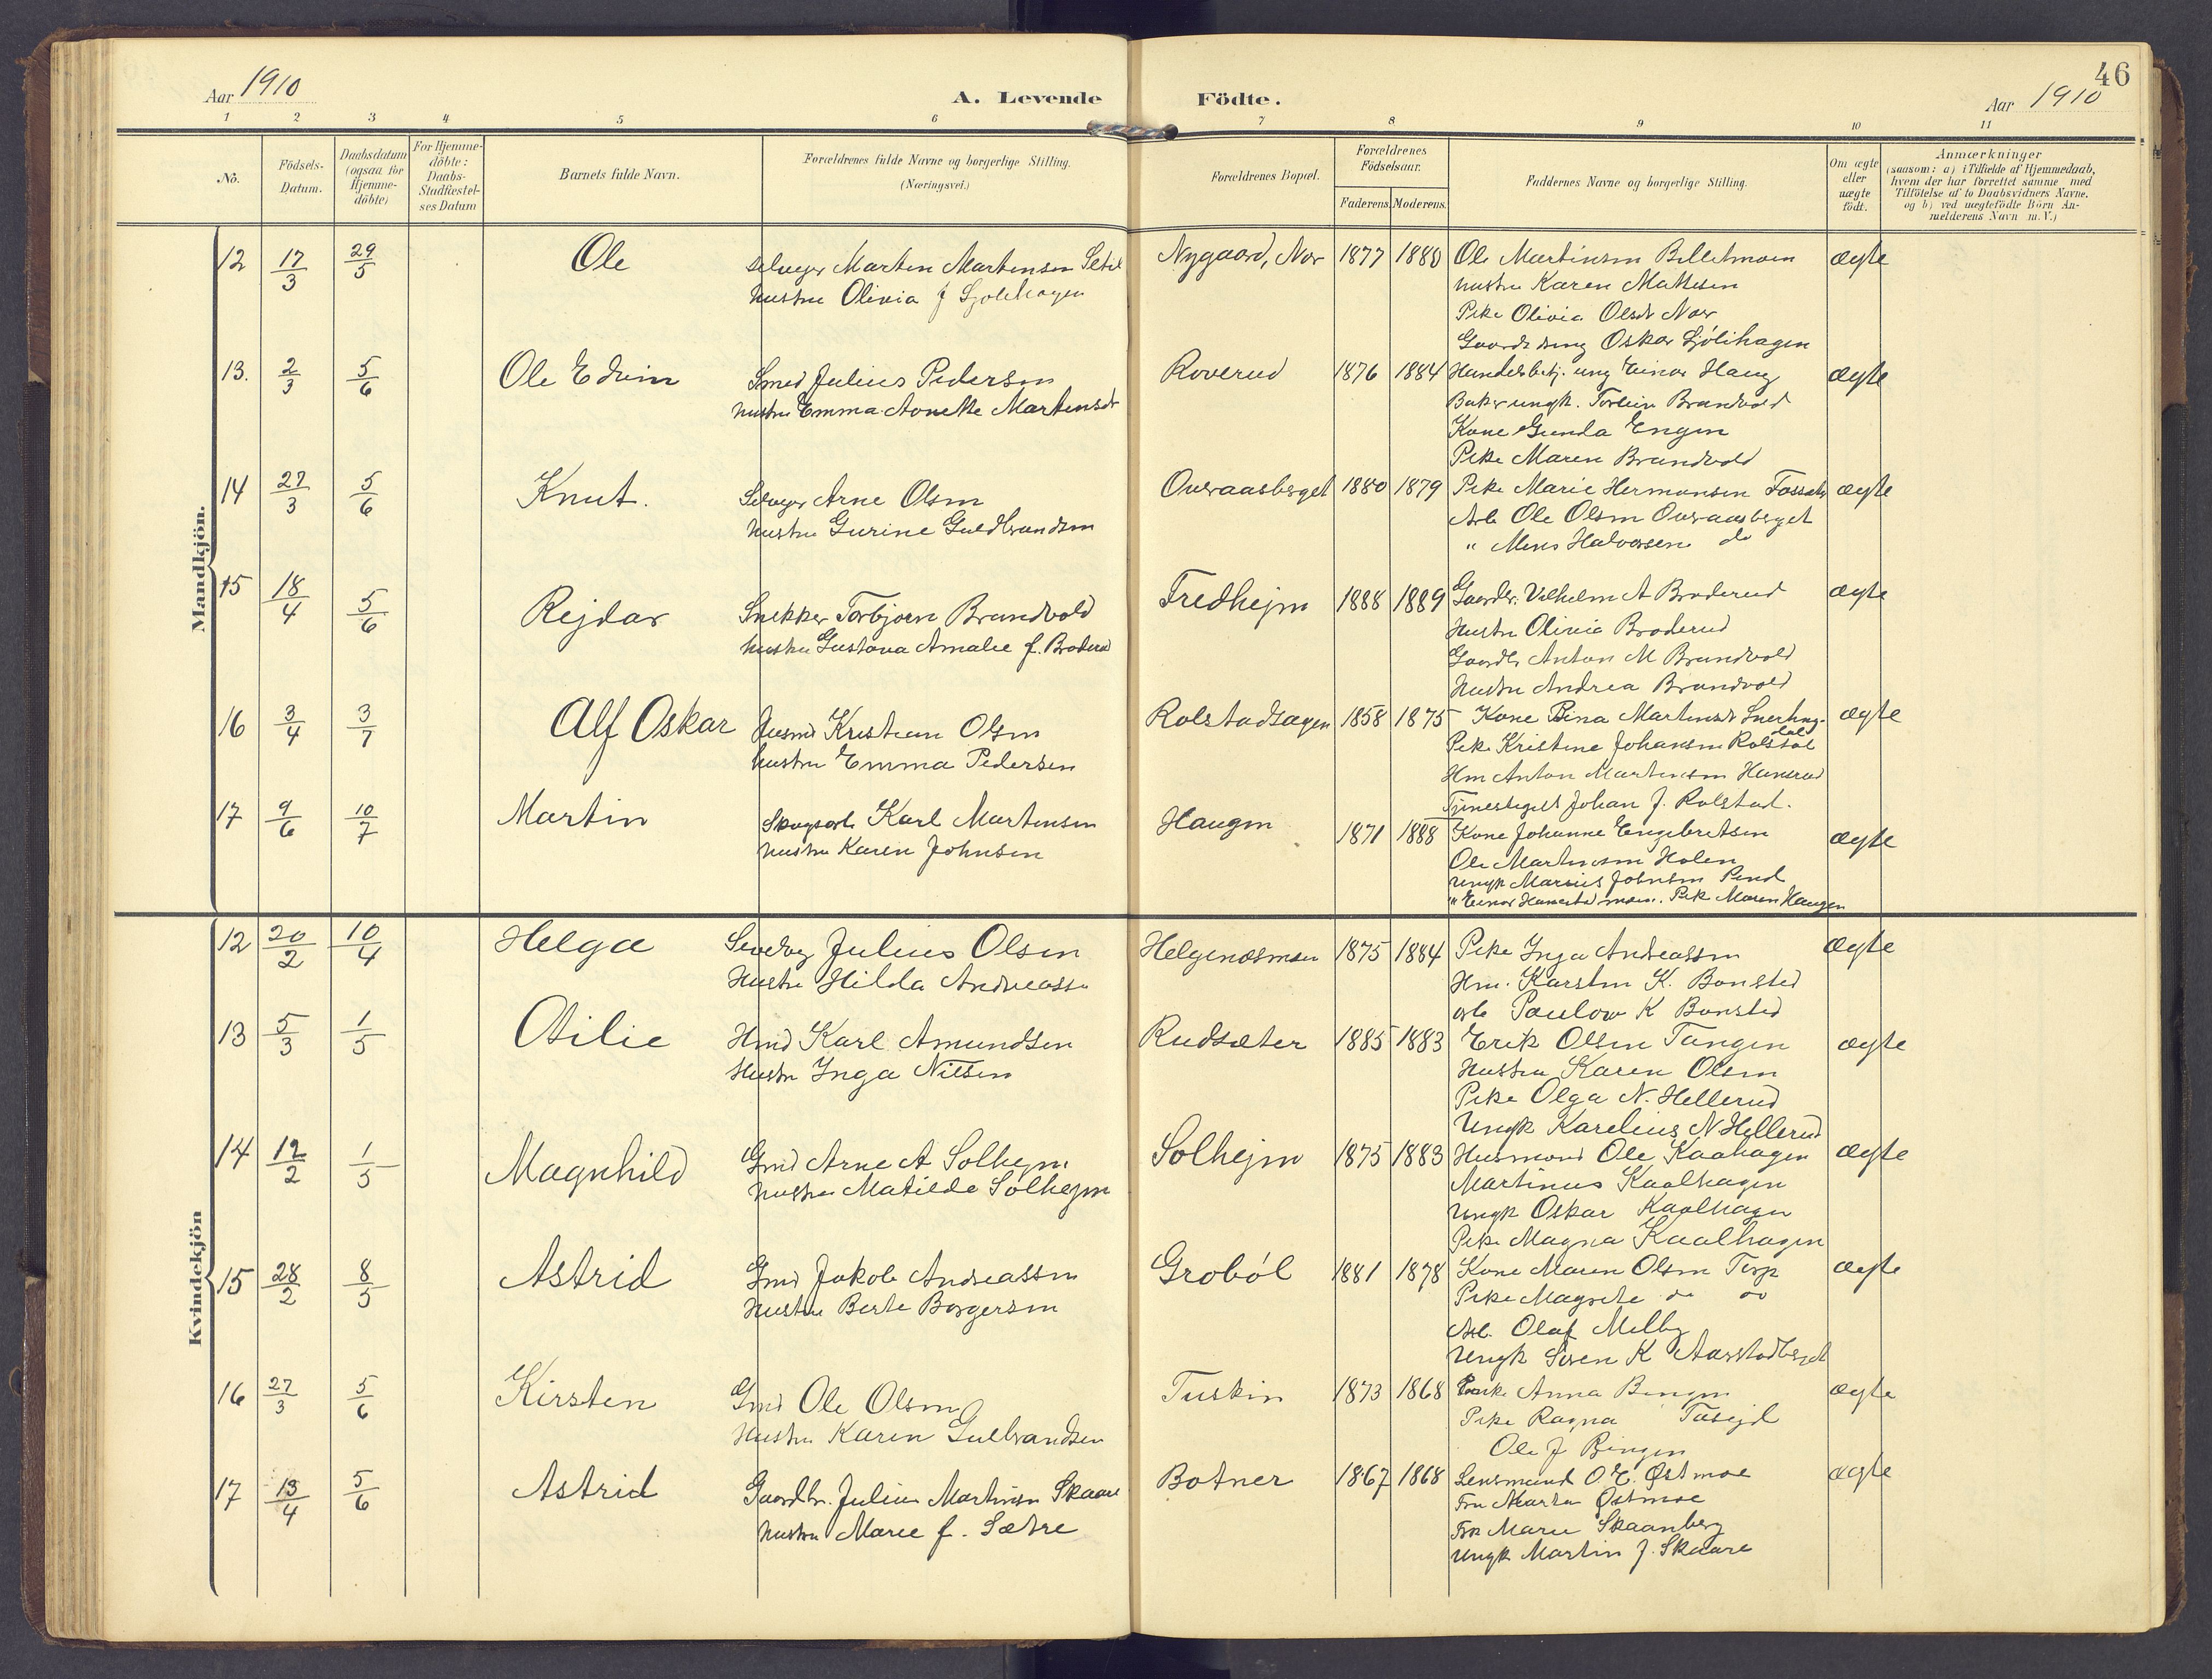 46
Aar 1910
A. Levende Födte.
Aar 1910
1 2 3 4 5 6 7 8 9 10 11
No.
Födsels-Datum.
Daabsdatum (ogsaa for Hjemme-döbte)
For Hjemme-döbte: Daabs-Stadfæstel-ses Datum
Barnets fulde Navn.
Forældrenes fulde Navne og borgerlige Stilling.
(Næringsvei.)
Forældrenes Bopæl.
Forældrenes Födselsaar.
Faderens. Moderens.
Faddernes Navne og borgerlige Stilling.
Om ægte eller uægte födt.
Anmærkninger
(saasom: a) i Tilfælde af Hjemmedaab,
hvem der har forrettet samme med
Tilföielse af to Daabsvidners Navne,
og b) ved uægtefödte Börn An-
melderens Navn m. V.)
Mandkjön.
12 17/3 29/5 Ole Selveyer Marten Martensen
hustru Olivia f Sjølihagen
Nygaard, Nor 1877 1880 Ole Martinsen Billetmoen ægte
hustru Karen Mathisen
Pike Olivia Olsdr Nor
Oskar Sjölihagen
13. 2/3 5/6 Ole Edvin Smed Julius Pedersen
hustru Emma Anette Martensdr
Roverud 1876 1884 Handelsbetj. ung Einar Haug ægte
Baker ungk. Torlein Brandvold
Kone Gunda Engen
Pike Maren Brandvold
14 27/3 5/6 Knut. Selveyer Arne Olsen
hustru Gurine Guldbrandsen
Overaasberget 1880 1879 Pike Marie Hermansen ægte
Arb Ole Olsen Overaasberget
" Mens Halvorsen do
15 18/4 5/6 Rejdar Snekker Torbjørn Brandvold
hustru Gustava Amalie f. Broderud
Fredhejm 1888 1889 Gaardbr. Vilhelm A Broderud ægte
Hustru Olivia Broderud
Gaardb. Anton M Brandvold
Hustru Andrea Brandvold
16 3/4 3/7 Alf Oskar Husmd Kristian Olsen
hustru Emma Pedersen
Rolstadsagen 1858 1875 Kone Bina Martinsdr ægte
Pike Kristine Johansen Rolstad
Hm Anton Martinsen
Johan J. Rolstad.
17 9/6 10/7 Martin Skogsarb Karl Martensen
hustru Karen Johnsen
Haugen 1871 1888 Kone Johanne Engebretsen ægte
Ole Martinsen Holen
Ungk Marius Johnsen
" Einar Pike Maren Haugen
Kvindekjön
12 20/2 10/4 Helga Julius Olsen
Hustr Hilda Andreassen
Helgenæsmoen 1875 1884 Pike Inga Andreassen ægte
Hm. Karsten K. Bonsted
arb Paulow K Bonsted
13 5/3 1/5 Otilie Hmd Karl Amundsen
Hustr Inga Nilsen
Rudsæter 1885 1883 Erik Olsen Tangen ægte
Hustru Karen Olsen
Pike Olga N. Hellerud
Ungk Karelius N Hellerud
14 12/2 1/5 Magnhild Gmd Arne A Solhejm
hustru Matilde Solhejm
Solhejm 1875 1883 Husmand Ole Kaahagen ægte
Martinus Kaalhagen
Ungk Oskar Kaalhagen
Pike Magna Kaalhagen
15 28/2 8/5 Astrid Gmd Jakob Andreassen
Hustru Berte Borgersen
Groböl 1881 1878 Kone Maren Olsen Torp ægte
Pike Magrete do do
Arb. Olaf Melby
Ungk Soren K Aarstadberget
16 27/3 5/6 Kirsten Gmd Ole Olsen
Hustru Karen Gulbrandsen
Tuskin 1873 1868 Enke Anna Bingen ægte
Pike Ragna
Ole J Bingen
17 13/4 5/6 Astrid Gaardbr. Julius Martinsen Skaare
hustru Marie f. Sætre
Botner 1867 1868 Lensmand O. E. Østmoe ægte
Fru Marta Østmoe
Frk Marie Skaanberg
Ungk Martin J. Skaare